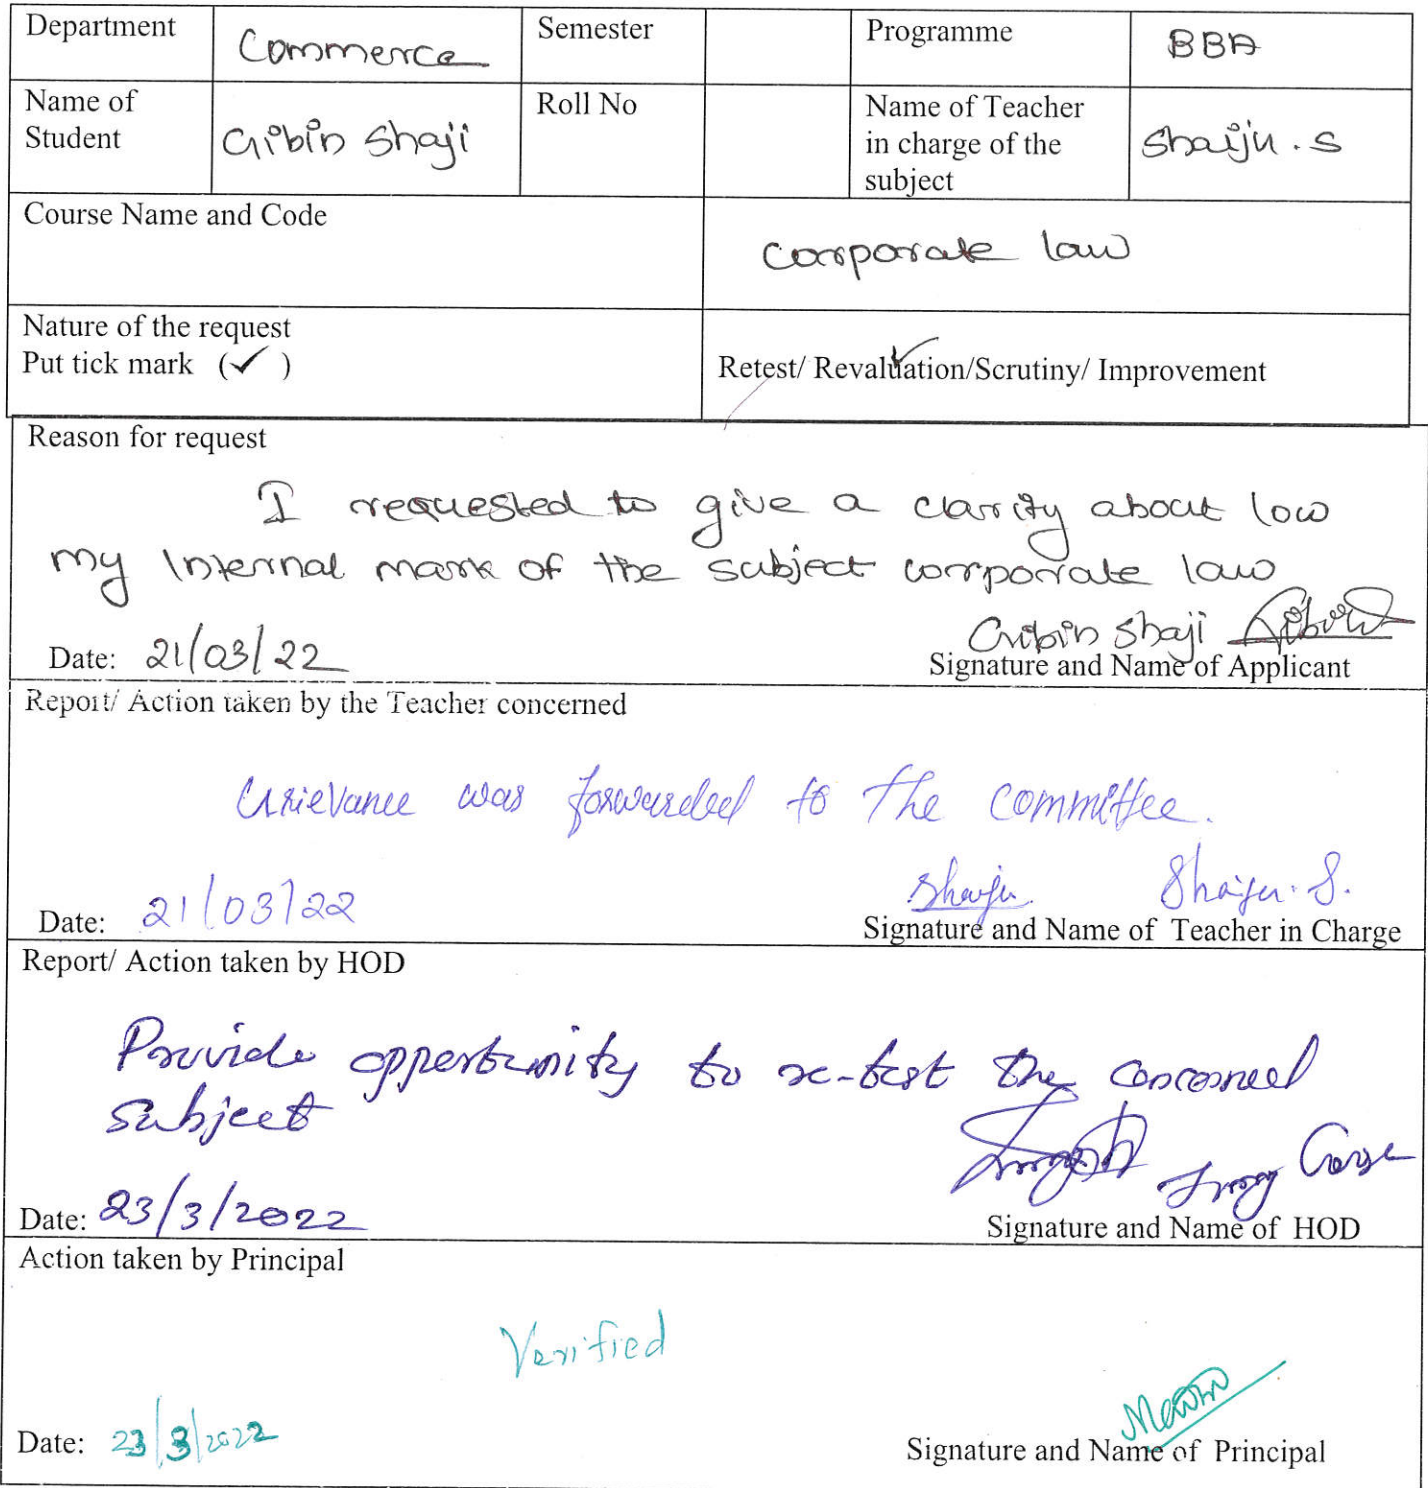 Department Commerce Semester Programme BBA
Name of Student Gibin Shaji Roll No Name of Teacher in charge of the subject Shaiju . S
Course Name and Code Corporate law
Nature of the request
Put tick mark (✓) Retest/ Revaluation/Scrutiny/ Improvement
Reason for request
I requested to give a clarity about low
my Internal mark of the subject corporate law
Gibin Shaji
Date: 21/03/22 Signature and Name of Applicant
Report/ Action taken by the Teacher concerned
Grievance was forwarded to the committee.
Shaiju Shaiju. S.
Date: 21/03/22 Signature and Name of Teacher in Charge
Report/ Action taken by HOD
Provide oppertunity to re-test the concerned
subject
Date: 23/3/2022 Signature and Name of HOD
Action taken by Principal
Verified
Date: 23/3/2022 Signature and Name of Principal